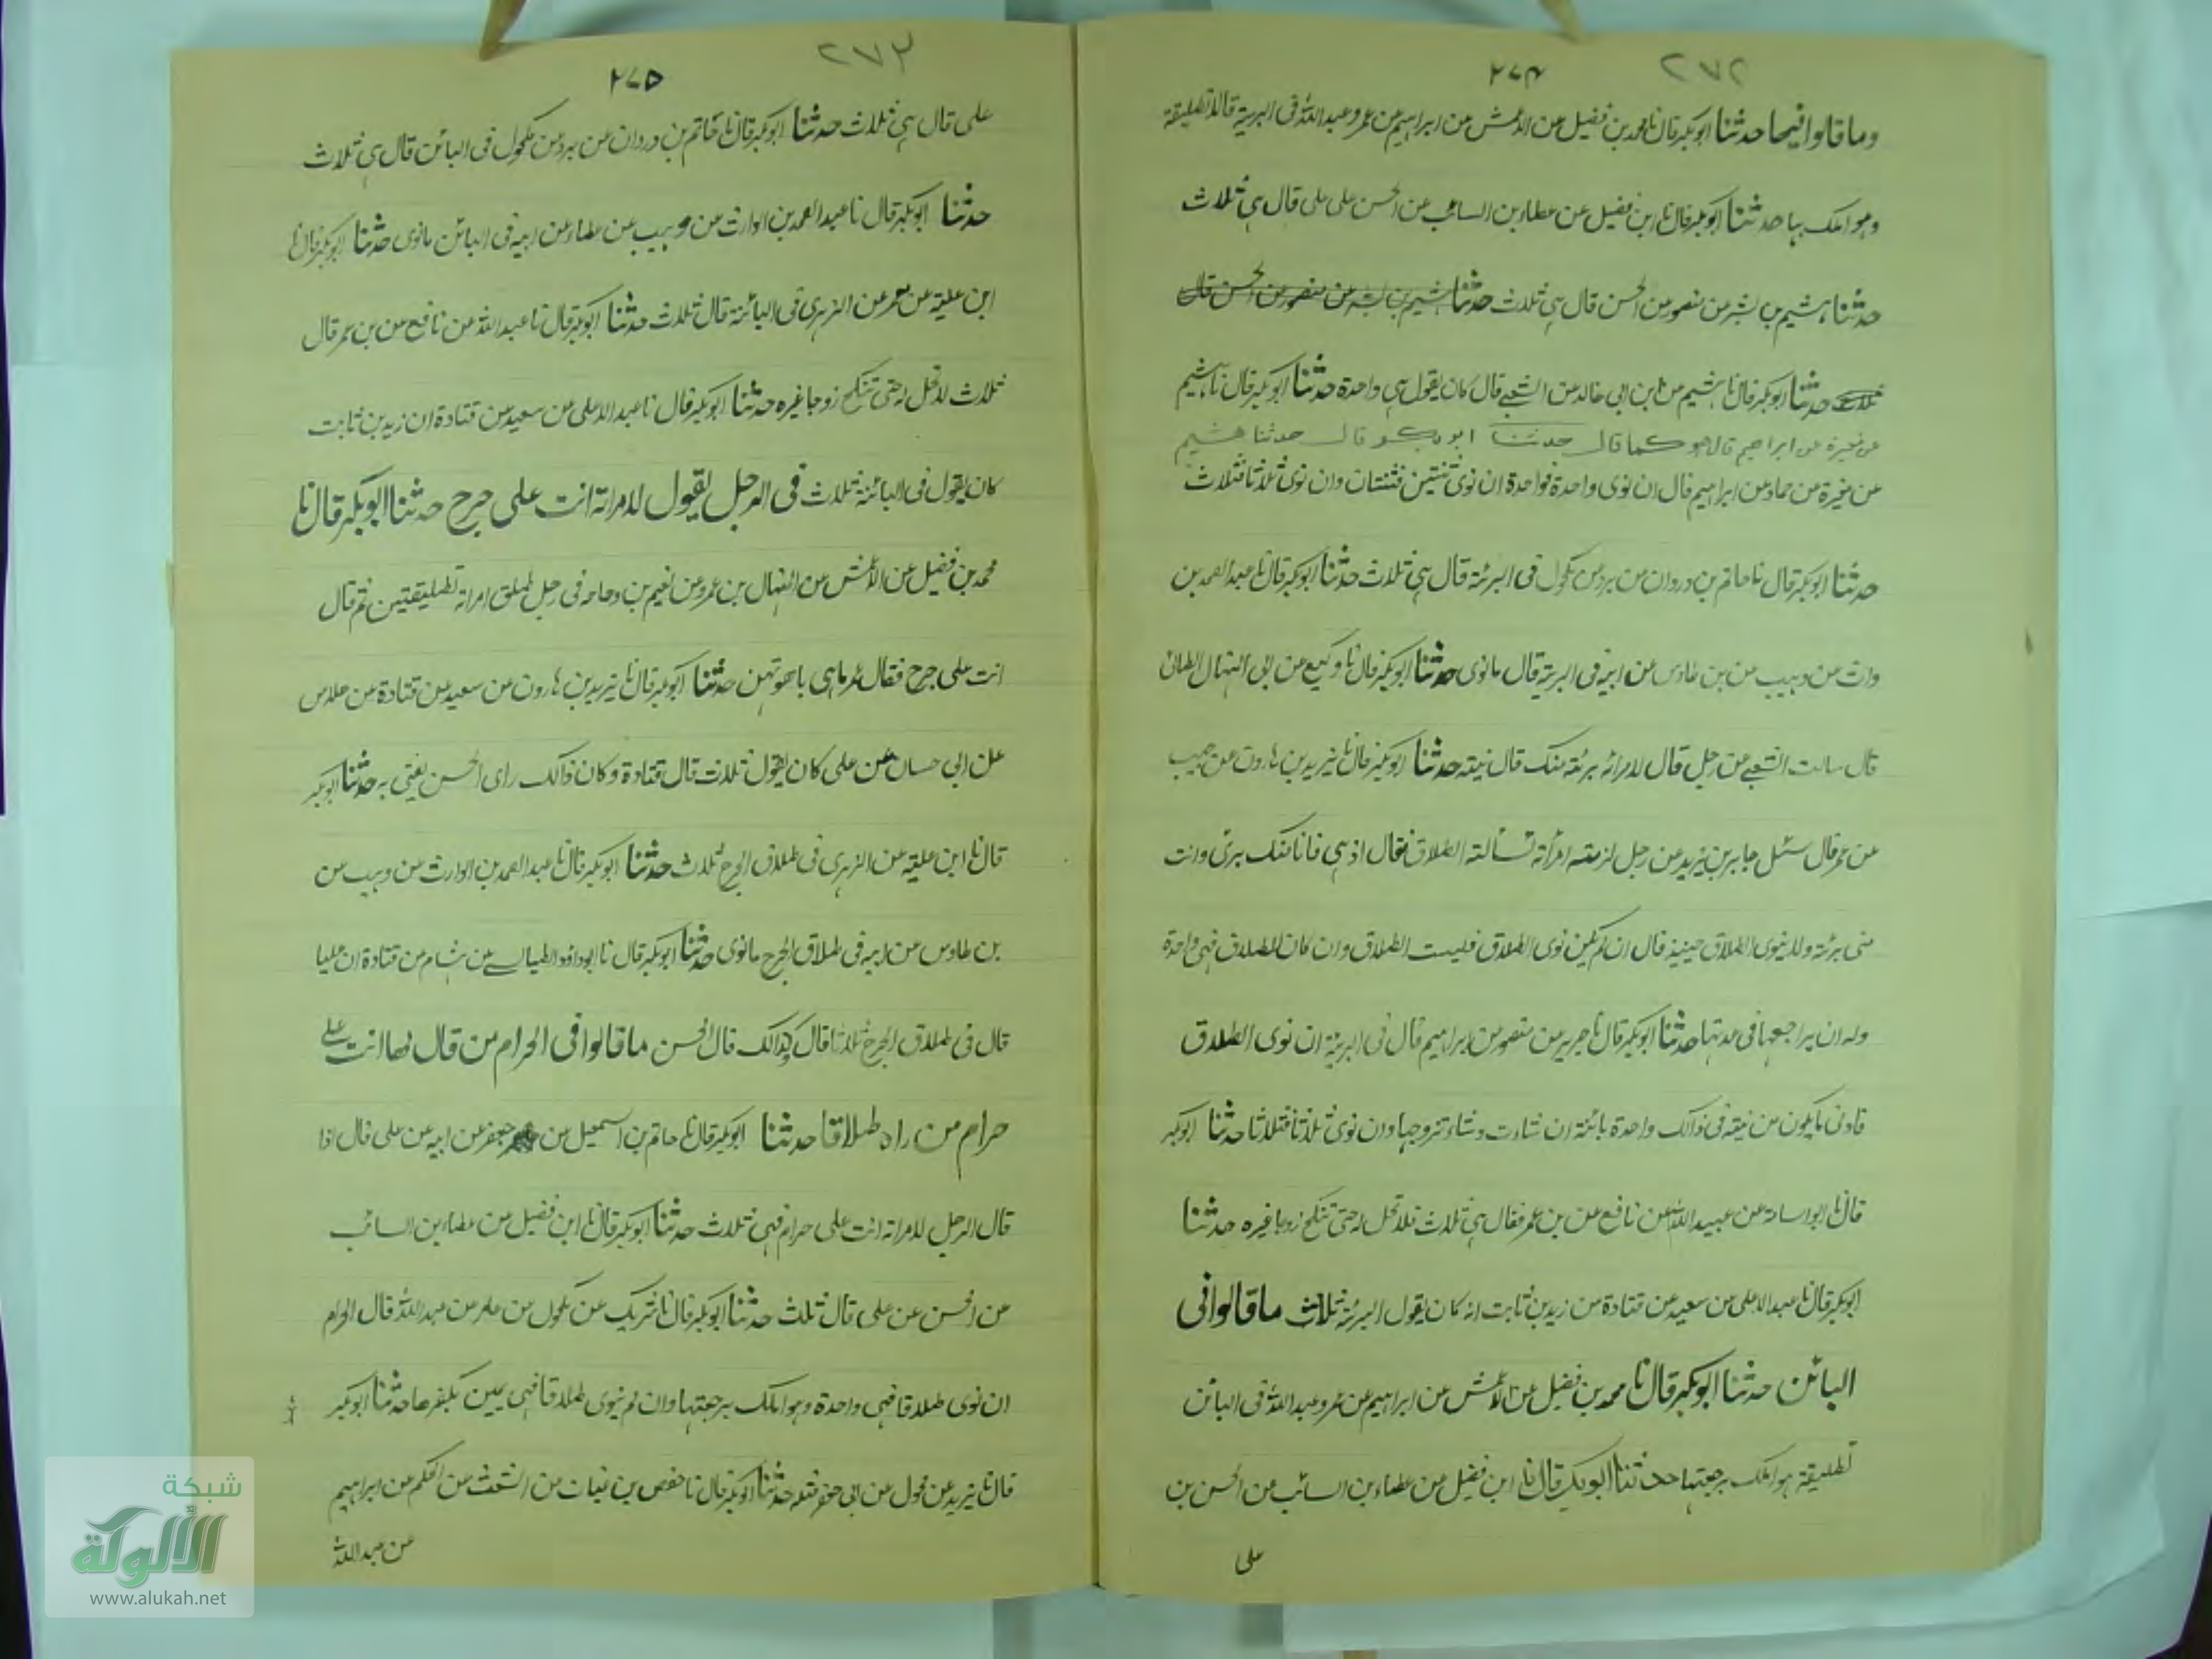 ٢٧٢
٢٧٤
وما قالوا فيها حدثنا ابوبكر قال نا محمد بن فضيل عن الاعمش عن ابراهيم عن عمر وعبد الله فى البرية قالا تطليقة
وهو املك بها حدثنا ابوبكر قال نا ابن فضيل عن عطاء بن السائب عن الحسن على على قال هى ثلاث
حدثنا هشيم بن بشر عن منصور عن الحسن قال هى ثلاث حدثنا هشيم بن بشر عن منصور عن الحسن قال
ثلاث حدثنا ابوبكر قال نا هشيم عن ابن ابى خالد عن الشعبى قال كان يقول هى واحدة حدثنا ابوبكر قال نا هشيم
عن مغيرة عن ابراهيم قال هو كما قال حدثنا ابوبكر قال حدثنا هشيم
عن مغيرة عن حماد عن ابراهيم قال ان نوى واحدة فواحدة ان نوى ثنتين فثنتان وان نوى ثلاثا فثلاث
حدثنا ابوبكر قال نا حاتم بن وردان عن برد عن مكحول فى البرئة قال هى ثلاث حدثنا ابوبكر قال نا عبد الصمد بن
وارث عن وهيب عن بن طاوس عن ابيه فى البرية قال ما نوى حدثنا ابوبكر قال نا وكيع عن ابى النهال الطائى
قال سالت الشعبى عن رجل قال لامراته برئت منك قال نيته حدثنا ابوبكر قال نا يزيد بن هارون عن حبيب
عن عمر قال سئل جابر بن يزيد عن رجل لزمته امرأته تسألته الطلاق فقال اذهبى فانا منك برئ وانت
منى برئة ولا ينوى الطلاق حينئذ قال ان لم يكن نوى الطلاق فليست الطلاق وان كان للطلاق فهى واحدة
وله ان يراجعها فى عدتها حدثنا ابوبكر قال نا جرير عن منصور عن ابراهيم قال فى البرية ان نوى الطلاق
فادنى ما يكون من نيته فى ذالك واحدة بائنة ان شاءت وشاء تزوجها وان نوى ثلاثا فثلاثا حدثنا ابوبكر
قال نا ابو اسامة عن عبيد الله عن نافع عن بن عمر فقال هى ثلاث فلا تحل له حتى تنكح زوجا غيره حدثنا
ابوبكر قال نا عبد الاعلى عن سعيد عن قتادة عن زيد بن ثابت انه كان يقول البرئة ثلاث ما قالوا فى
البائن حدثنا ابوبكر قال نا محمد بن فضيل عن الاعمش عن ابراهيم عن عمر وعبد الله فى البائن
تطليقة هو املك برجعتها حدثنا ابوبكر قال نا ابن فضيل عن عطاء بن السائب عن الحسن بن
على
٢٧٣
٢٧٥
على قال هى ثلاث حدثنا ابوبكر قال نا حاتم بن وردان عن برد عن مكحول فى البائن قال هى ثلاث
حدثنا ابوبكر قال نا عبد الصمد بن الوارث عن وهيب عن عطاء عن ابيه فى البائن ما نوى حدثنا ابوبكر قال نا
ابن علية عن معمر عن الزهرى فى البائنة قال ثلاث حدثنا ابوبكر قال نا عبد الله عن نافع عن بن عمر قال
ثلاث لا تحل له حتى تنكح زوجا غيره حدثنا ابوبكر قال نا عبد الاعلى عن سعيد عن قتادة ان زيد بن ثابت
كان يقول فى البائنة ثلاث فى الرجل يقول لامراته انت على حرج حدثنا ابوبكر قال نا
محمد بن فضيل عن الاعمش عن المنهال بن عمرو عن نعيم بن دجاجه فى رجل طلق امراته تطليقتين ثم قال
انت على حرج فقال عمر ماهى باهونهن حدثنا ابوبكر قال نا يزيد بن هارون عن سعيد عن قتادة عن خلاس
عن ابى حسان عن على كان يقول ثلاث قال قتادة وكان ذالك راى الحسن يفتى به حدثنا ابوبكر
قال نا ابن علية عن الزهرى فى طلاق الحرج ثلاث حدثنا ابوبكر قال نا عبد الصمد بن الوارث عن وهيب عن
بن طاوس عن ابيه فى طلاق الحرج ما نوى حدثنا ابوبكر قال نا ابو داؤد الطيالسى عن هشام عن قتادة ان عليا
قال فى طلاق الحرج ثلاثا قال كذالك قال الحسن ما قالوا فى الحرام من قال لها انت على
حرام من راه طلاقا حدثنا ابوبكر قال نا حاتم بن اسمعيل عن جعفر عن ابيه عن على قال اذا
قال الرجل لامراته انت على حرام فهى ثلاث حدثنا ابوبكر قال نا ابن فضيل عن عطاء بن السائب
عن الحسن عن على قال ثلث حدثنا ابوبكر قال نا شريك عن مكحول عن عامر عن عبد الله قال الحرام
ان نوى طلاقا فهى واحدة وهو املك برجعتها وان لم ينوى طلاقا فهى يمين يكفرها حدثنا ابوبكر
قال نا يزيد عن مخول عن ابى جعفر مثله حدثنا ابوبكر قال نا حفص بن غياث عن اشعث عن الحكم عن ابراهيم
عن عبد الله
شبكة
الألوكة
www.alukah.net